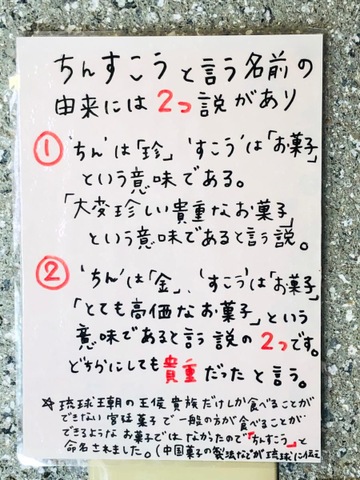 ちんすこうと言う名前の
由来には2つ説があり
① 'ちん'は「珍」'すこう'は「お菓子」
という意味である。
「大変珍しい貴重なお菓子」
という意味であると言う説。
② 'ちん'は「金」、'すこう'は「お菓子」
「とても高価なお菓子」という
意味であると言う説の2つです。
どちらにしても貴重だったと言う。
☆琉球王朝の王侯貴族だけしか食べることが
できない宮廷菓子で一般の方が食べることが
できるようなお菓子ではなかったので「ちんすこう」と
命名されました。(中国菓子の製法などが琉球に伝